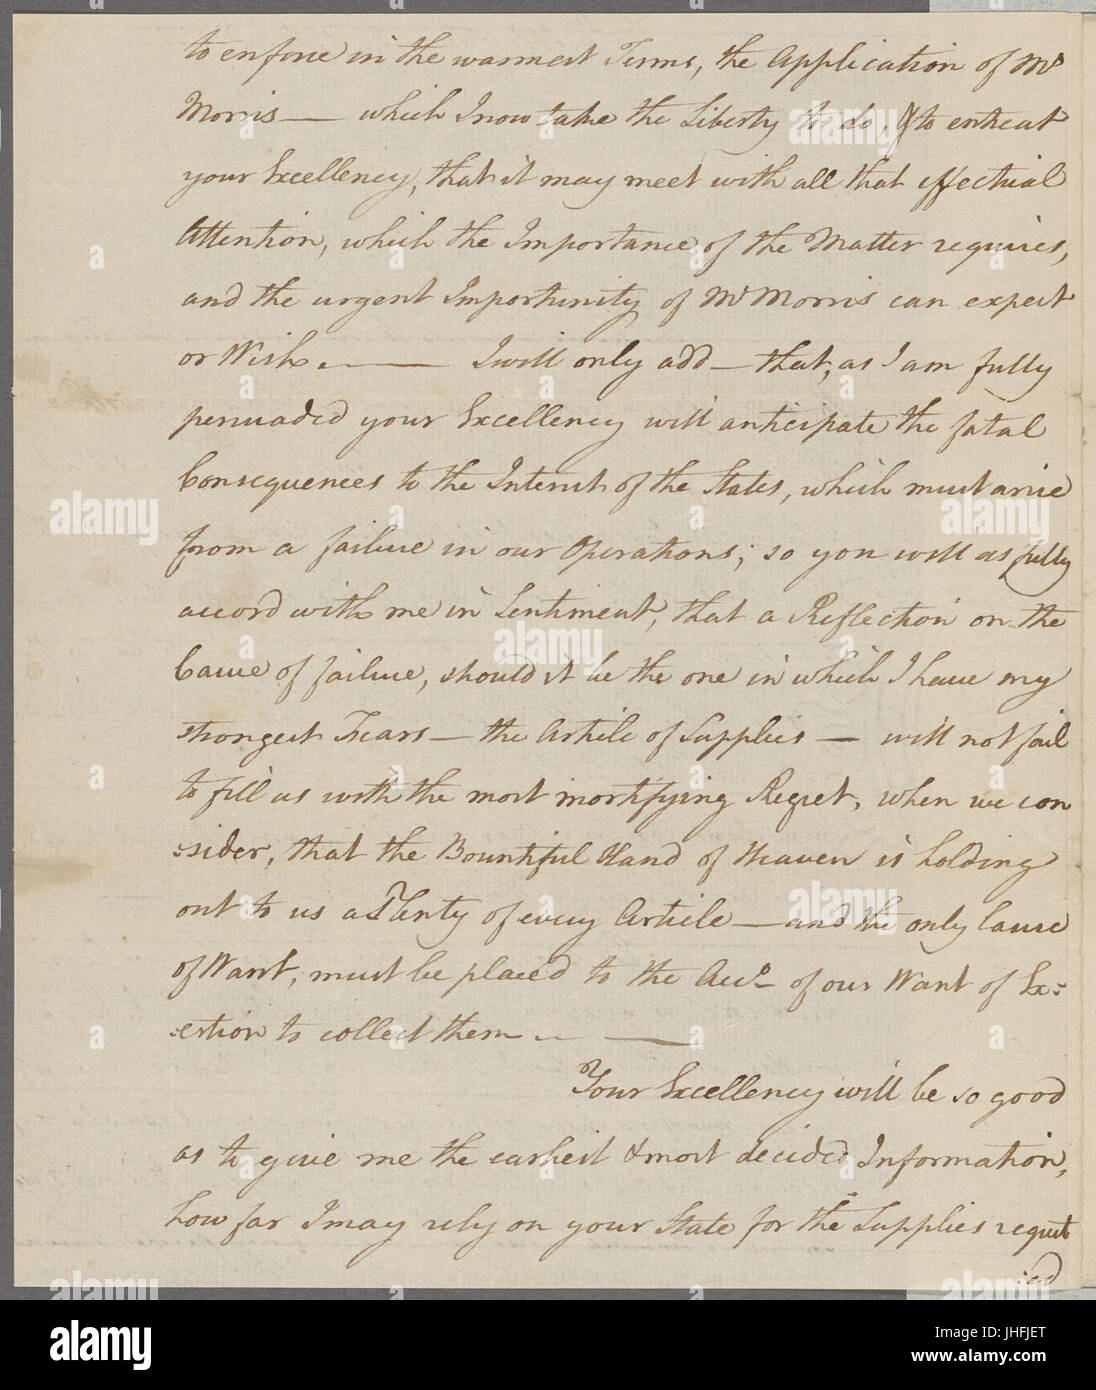 to enforce in the warmest Terms, the Application of Mr
Morris — which I now take the Liberty to do, & to entreat
your Excellency, that it may meet with all that effectual
Attention, which the Importance of the Matter requires,
and the urgent Importunity of Mr Morris can expect
or Wish. — I will only add — that, as I am fully
persuaded your Excellency will anticipate the fatal
Consequences to the Interest of the States, which must arise
from a failure in our Operations; so you will as fully
accord with me in Sentiment, that a Reflection on the
Cause of failure, should it be the one in which I have my
strongest Fears — the Article of Supplies — will not fail
to fill us with the most mortifying Regret, when we con
:sider, that the Bountiful Hand of Heaven is holding
out to us a Plenty of every Article — and the only Cause
of Want, must be placed to the Acco of our Want of Ex:
:ertion to collect them — —
Your Excellency will be so good
as to give me the earliest & most decided Information,
how far I may rely on your State for the Supplies requst
:ed
alamy
JHFJET
www.alamy.com